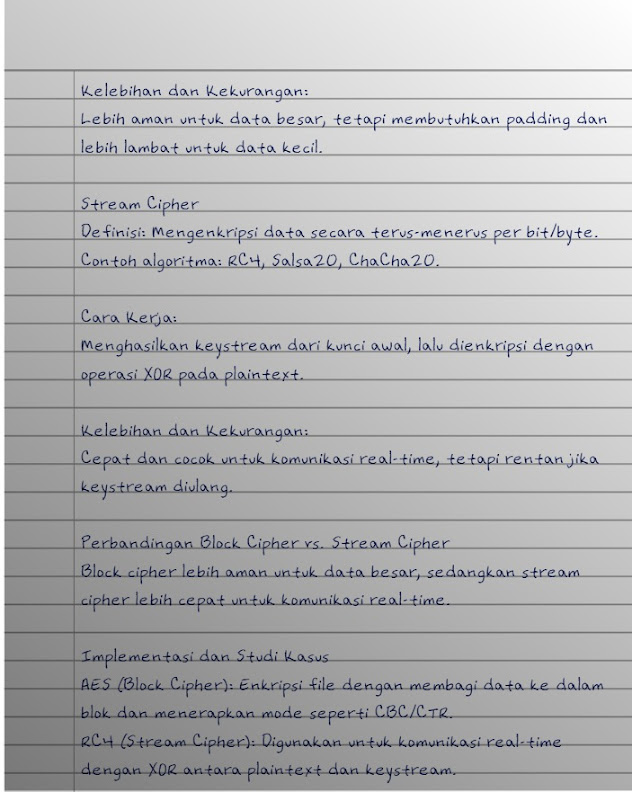 Kelebihan dan Kekurangan:
Lebih aman untuk data besar, tetapi membutuhkan padding dan
lebih lambat untuk data kecil.
Stream Cipher
Definisi: Mengenkripsi data secara terus-menerus per bit/byte.
Contoh algoritma: RC4, Salsa20, ChaCha20.
Cara Kerja:
Menghasilkan keystream dari kunci awal, lalu dienkripsi dengan
operasi XOR pada plaintext.
Kelebihan dan Kekurangan:
Cepat dan cocok untuk komunikasi real-time, tetapi rentan jika
keystream diulang.
Perbandingan Block Cipher vs. Stream Cipher
Block cipher lebih aman untuk data besar, sedangkan stream
cipher lebih cepat untuk komunikasi real-time.
Implementasi dan Studi Kasus
AES (Block Cipher): Enkripsi file dengan membagi data ke dalam
blok dan menerapkan mode seperti CBC/CTR.
RC4 (Stream Cipher): Digunakan untuk komunikasi real-time
dengan XOR antara plaintext dan keystream.